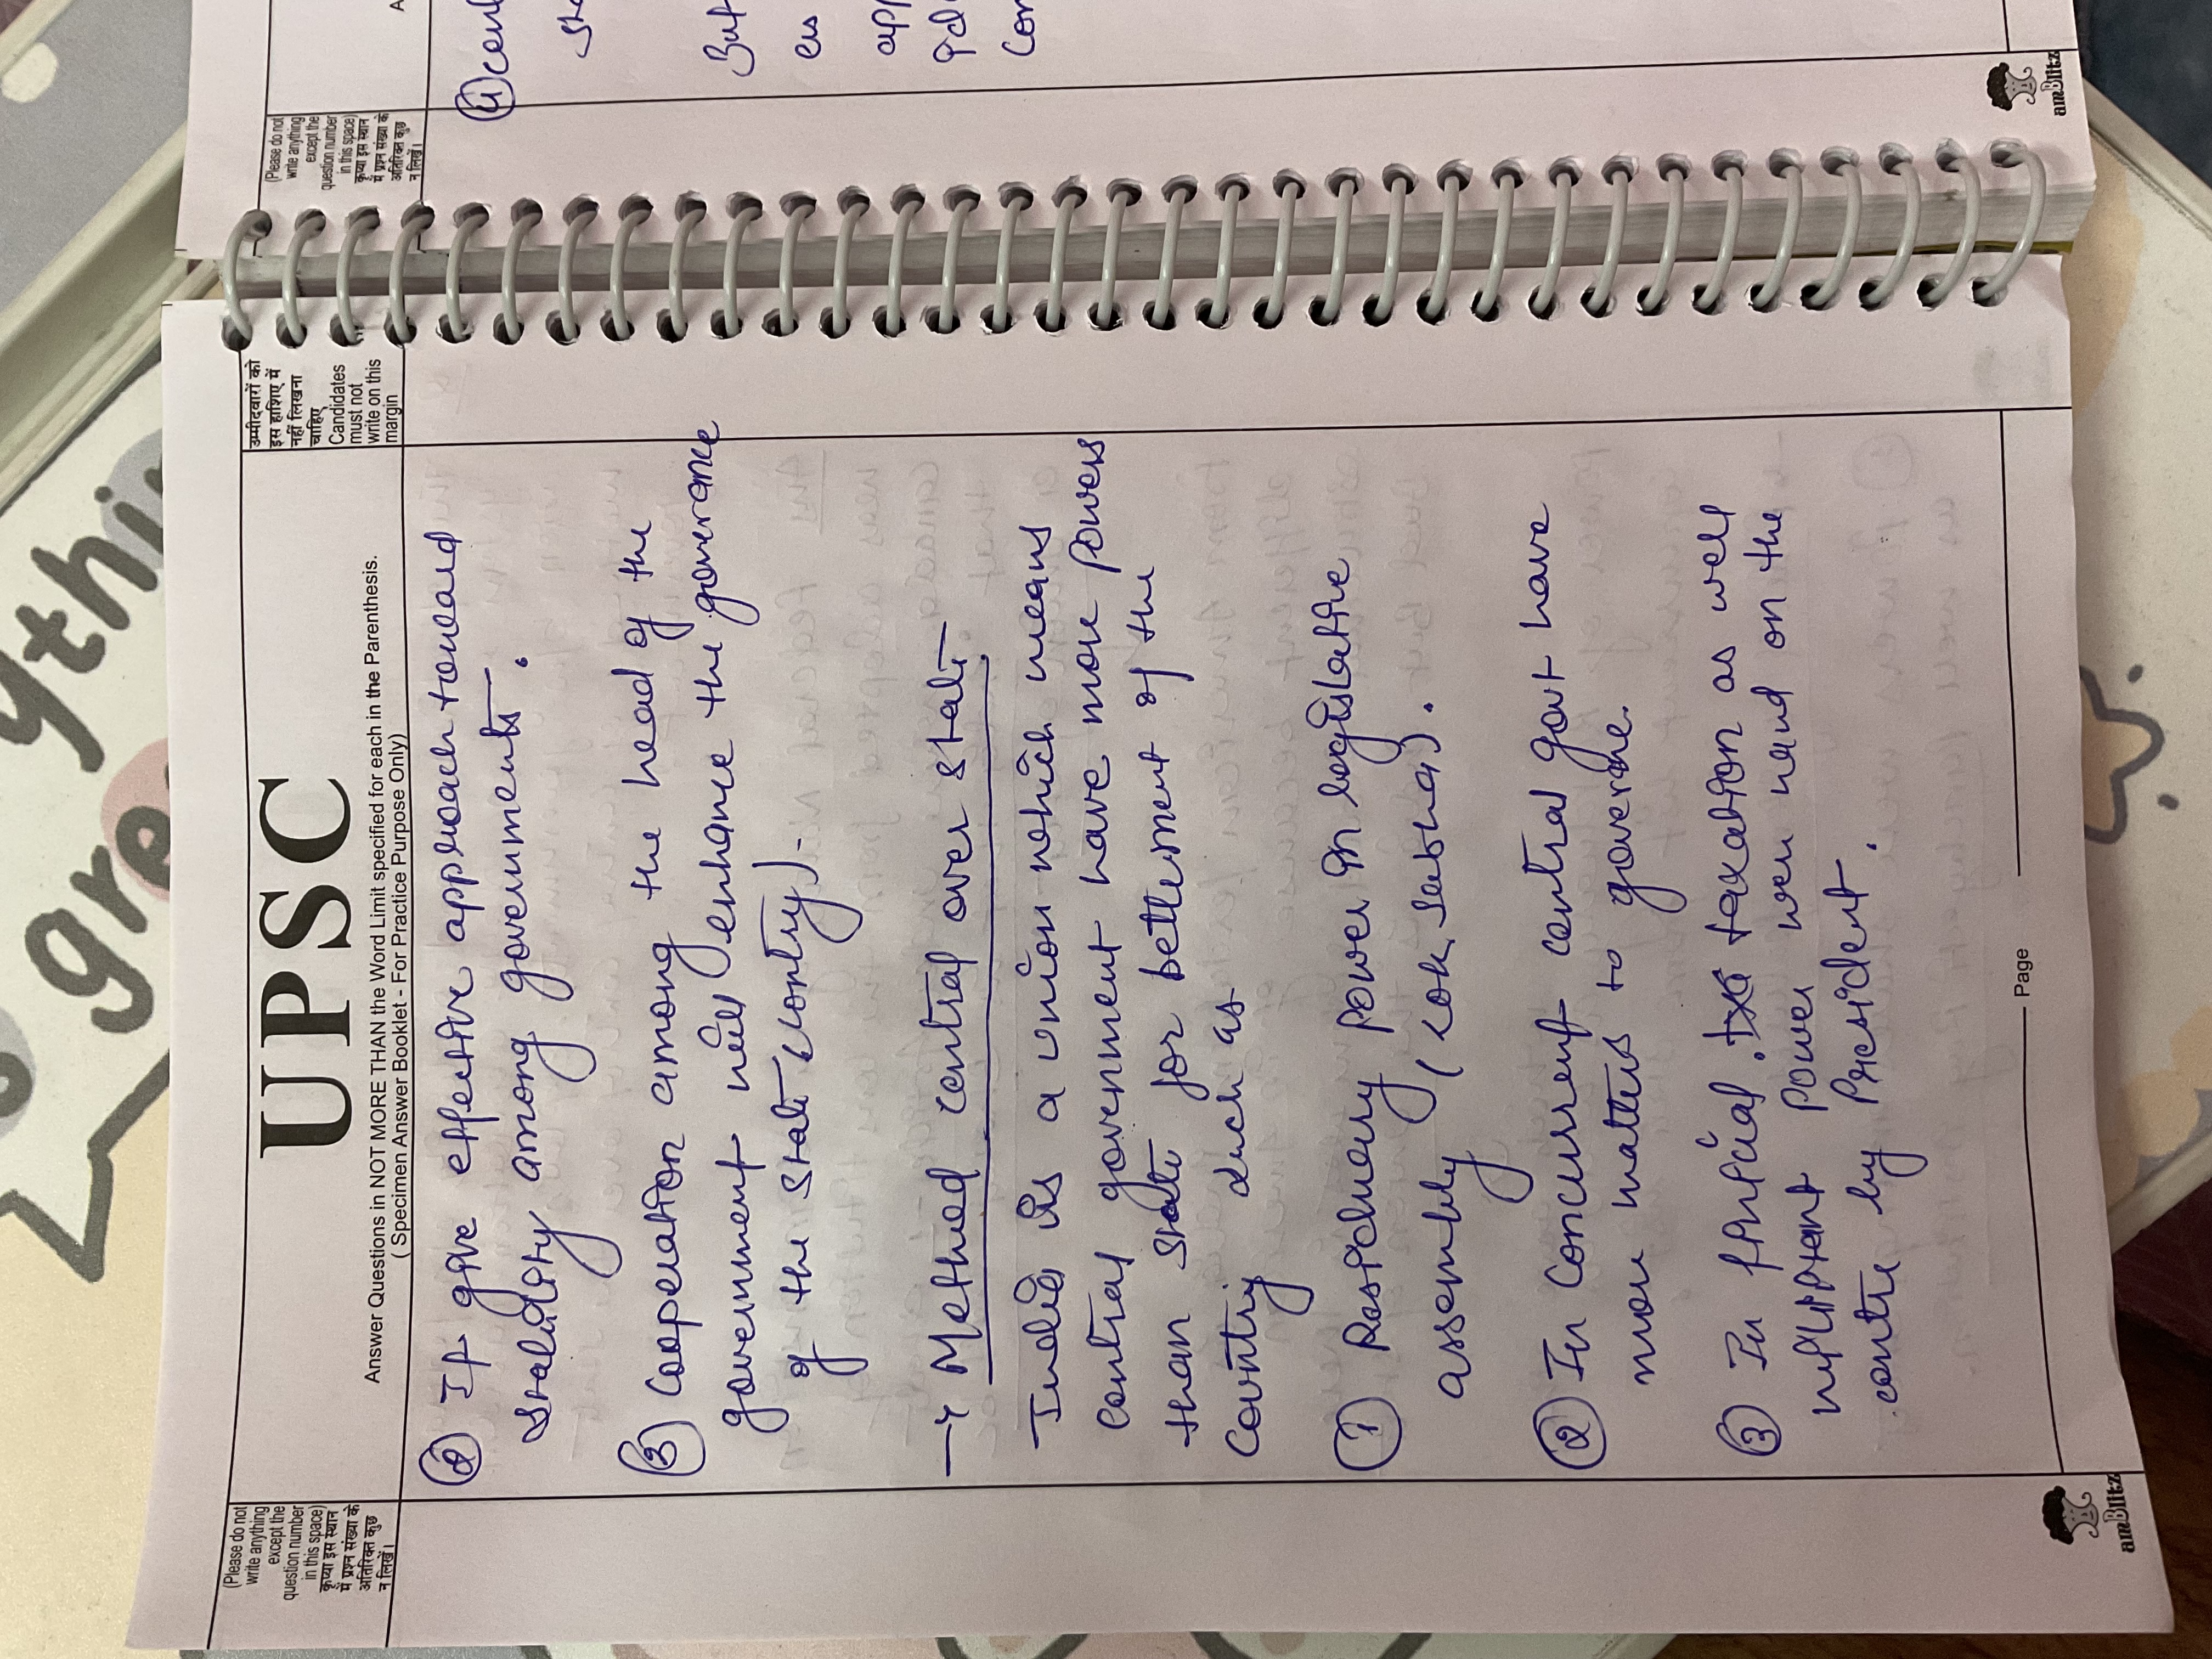 (Please do not
write anything
except the
question number
in this space)
कृप्या इस स्थान
में प्रश्न संख्या के
अतिरिक्त कुछ
न लिखें।
UPSC
Answer Questions in NOT MORE THAN the Word Limit specified for each in the Parenthesis.
( Specimen Answer Booklet - For Practice Purpose Only)
उम्मीदवारों को
इस हाशिए में
नहीं लिखना
चाहिए
Candidates
must not
write on this
margin
② It give effective approach toward
among governments.
③ Cooperation among the head of the
government will enhance the governance
of the state
→ Method central over state
India is a union which means
central government have more powers
than state for betterment of the
country such as
① Residuary power in legislative
assembly
② In Concurrent central govt have
more matters to governe.
③ In taxation as well
power on the
centre by President.
Page
amBlitz
(Please do not
write anything
except the
question number
in this space)
कृप्या इस स्थान
में प्रश्न संख्या के
अतिरिक्त कुछ
न लिखें।
But
amBlitz